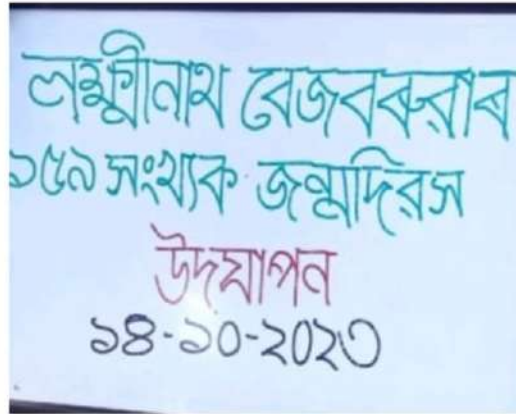 লক্ষ্মীনাথ বেজবৰুৱাৰ
১৫৯ সংখ্যক জন্মদিৱস
উদযাপন
১৪-১০-২০২৩